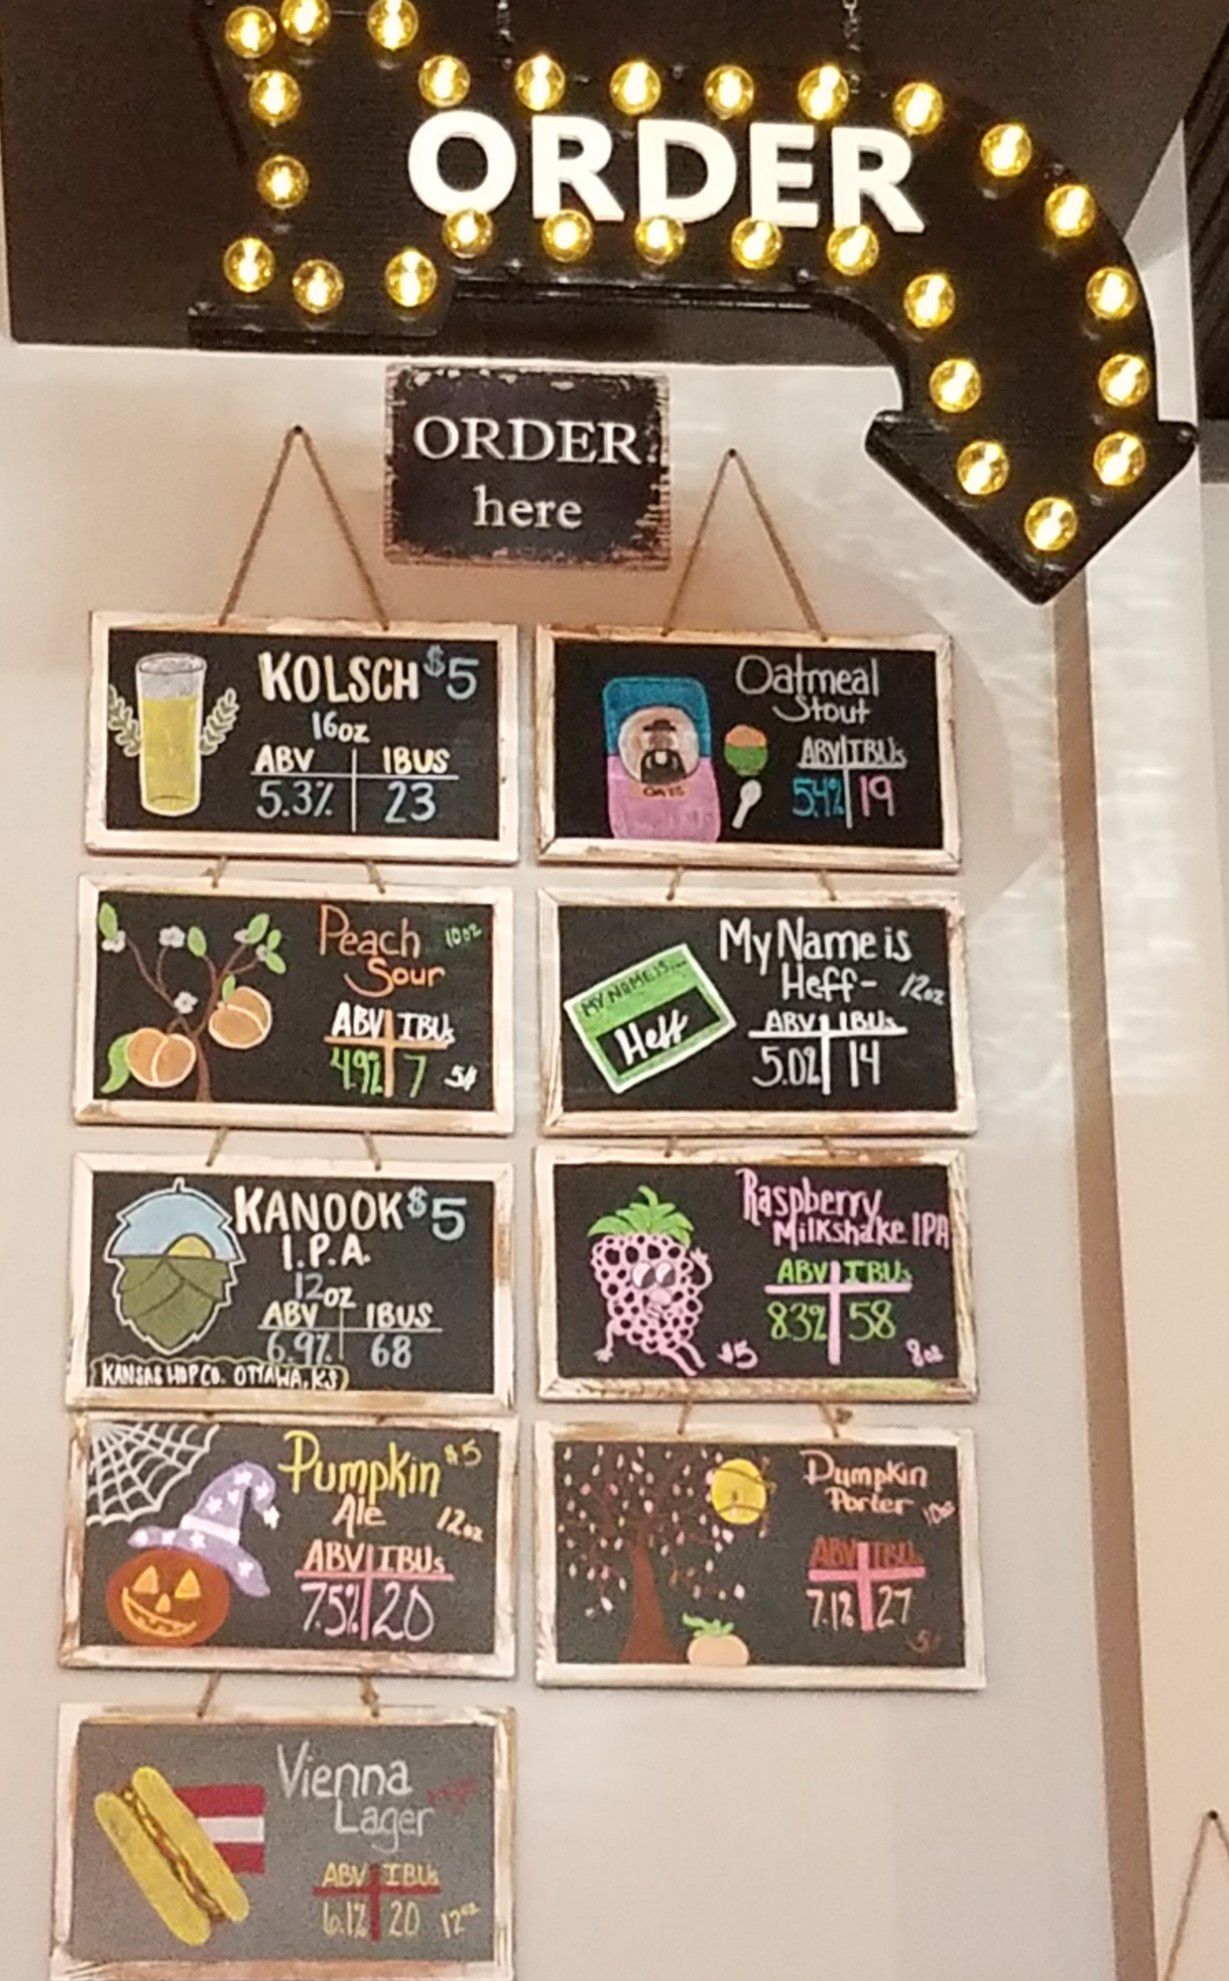 ORDER
ORDER
here
KOLSCH $5
16oz
ABV IBUS
5.3% 23
Oatmeal
Stout
OATS
ABV IBUs
5.4% 19
Peach 10oz
Sour
ABV IBUs
4.9% 7
My Name is
Heff- 12oz
MY NAME IS...
Heff
ABV IBUs
5.0% 14
KANOOK $5
I.P.A.
12oz
ABV IBUS
6.9% 68
KANSAS HOP CO. OTTAWA, KS
Raspberry
Milkshake IPA
ABV IBUs
8.3% 58
$5 8oz
Pumpkin $5
Ale 12oz
ABV IBUs
7.5% 20
Pumpkin
Porter 10oz
ABV IBU
7.1% 27
Vienna
Lager
ABV IBUs
6.1% 20 12oz